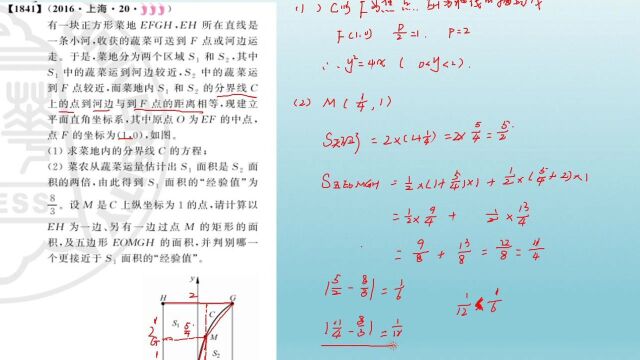 【1841】(2016·上海·20
有一块正方形菜地 EFGH,EH 所在直线是
一条小河,收获的蔬菜可送到 F 点或河边运
走。于是,菜地分为两个区域 S₁ 和 S₂,其中
S₁ 中的蔬菜运到河边较近,S₂ 中的蔬菜运
到 F 点较近,而菜地内 S₁ 和 S₂ 的分界线 C
上的点到河边与到 F 点的距离相等,现建立
平面直角坐标系,其中原点 O 为 EF 的中点,
点 F 的坐标为(1,0),如图。
(1)求菜地内的分界线 C 的方程;
(2)菜农从蔬菜运量估计出 S₁ 面积是 S₂ 面
积的两倍,由此得到 S₁ 面积的“经验值”为
8/3。设 M 是 C 上纵坐标为 1 的点,请计算以
EH 为一边、另有一边过点 M 的矩形的面
积,及五边形 EOMGH 的面积,并判别哪一
个更接近于 S₁ 面积的“经验值”。
y
2
H G
C
S₁ 5/4
M
S₂
F(1,0) P/2=1. P=2
∴ y²=4x (0<y<2).
(2) M(1/4,1)
=2×(1+1/4)=2×5/4=5/2
S五EOMGH=1/2×(1+5/4)×1+1/2×(5/4+2)×1
=1/2×9/4+1/2×13/4
=9/8+13/8=22/8=11/4
|5/2-8/3|=1/6
|11/4-8/3|=1/12
1/12<1/6